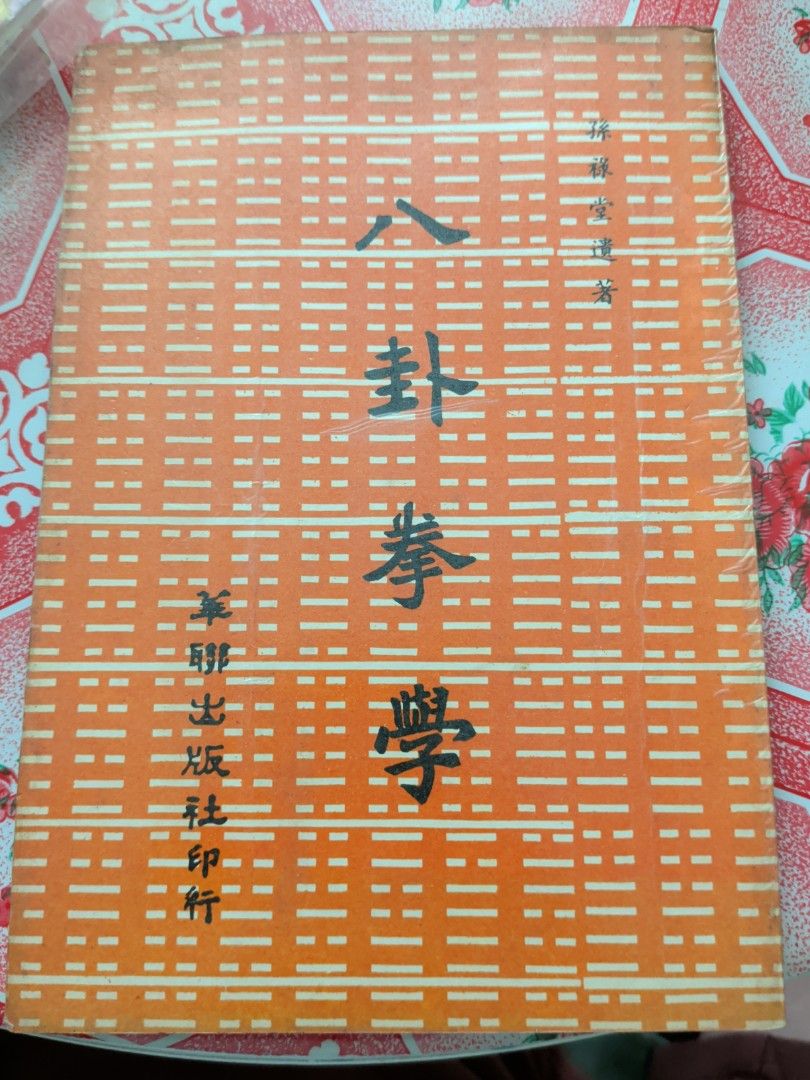 孫祿堂遺著
八卦拳學
華聯出版社印行